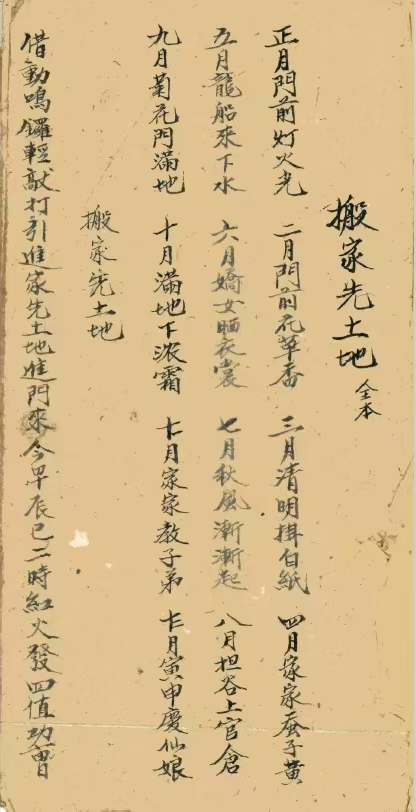 搬家先土地 全本
正月門前灯火光 二月門前花草香 三月清明掛白紙 四月家家蚕子黃
五月龍船來下水 六月嬌女晒衣裳 七月秋風漸漸起 八月担谷上官倉
九月菊花門滿地 十月滿地下浓霜 十一月家家教子弟 十二月寅申慶仙娘
搬家先土地
借動鳴鑼輕敲打引進家先土地進門來今早辰巳二時紅火發四值功曹